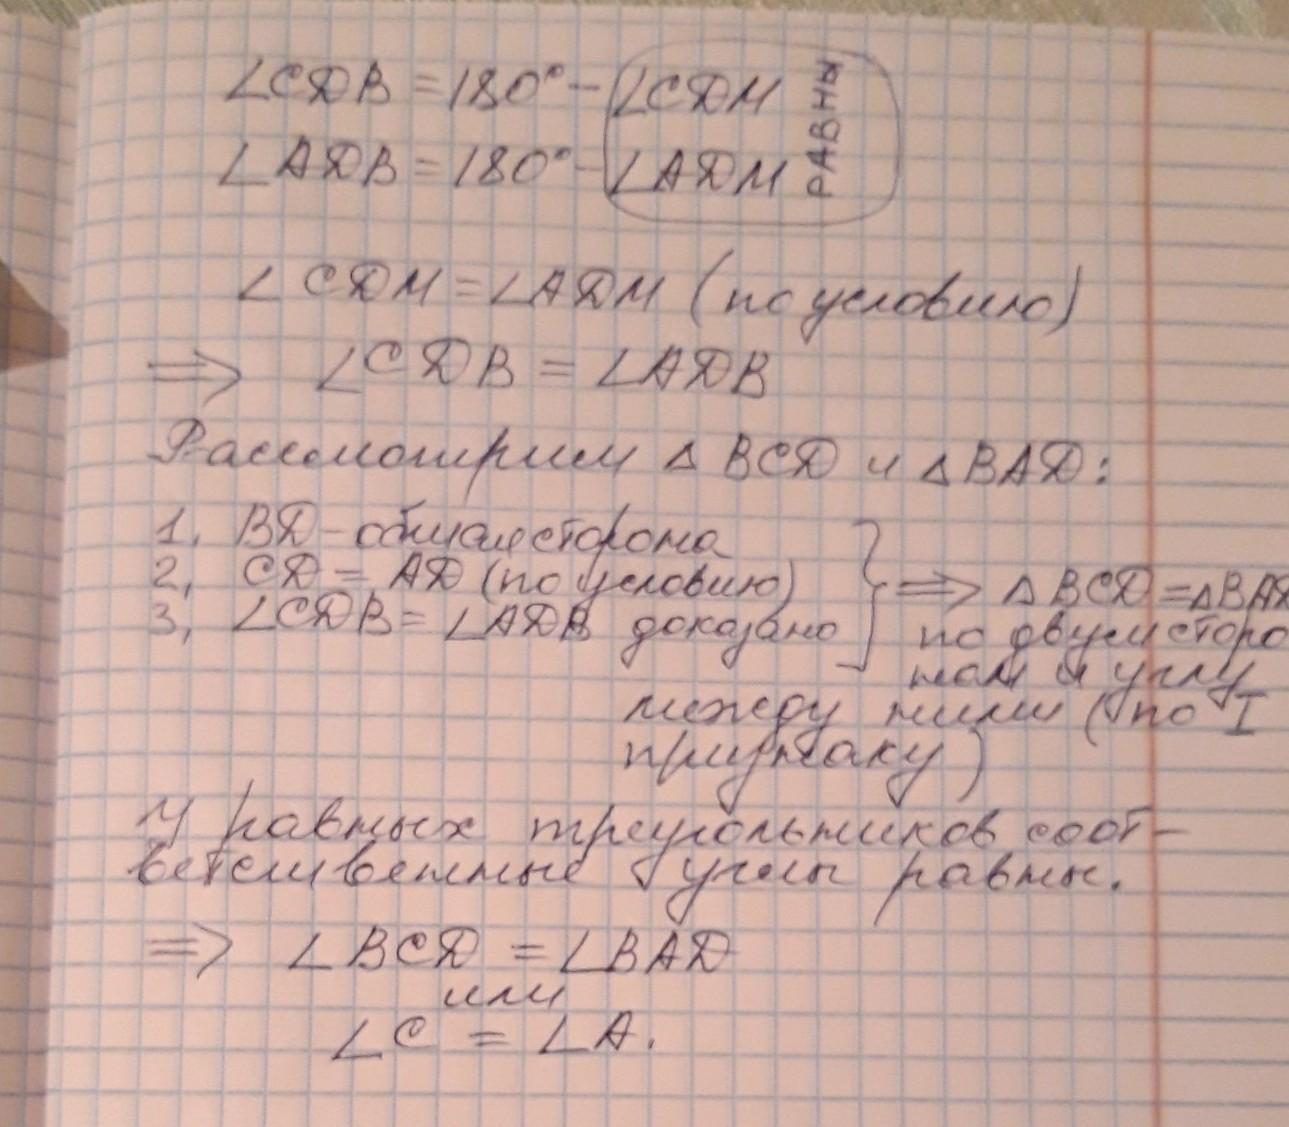 ∠CDB = 180° - ∠CDM
∠ADB = 180° - ∠ADM
РАВНЫ
∠CDM = ∠ADM (по условию)
⟹ ∠CDB = ∠ADB
Рассмотрим △BCD и △BAD:
1, BD - общая сторона
2, CD = AD (по условию)
3, ∠CDB = ∠ADB доказано
⟹ △BCD = △BAD
по двум сторо
нам и углу
между ними (по I
признаку)
У равных треугольников соот-
ветственные углы равны.
⟹ ∠BCD = ∠BAD
или
∠C = ∠A.